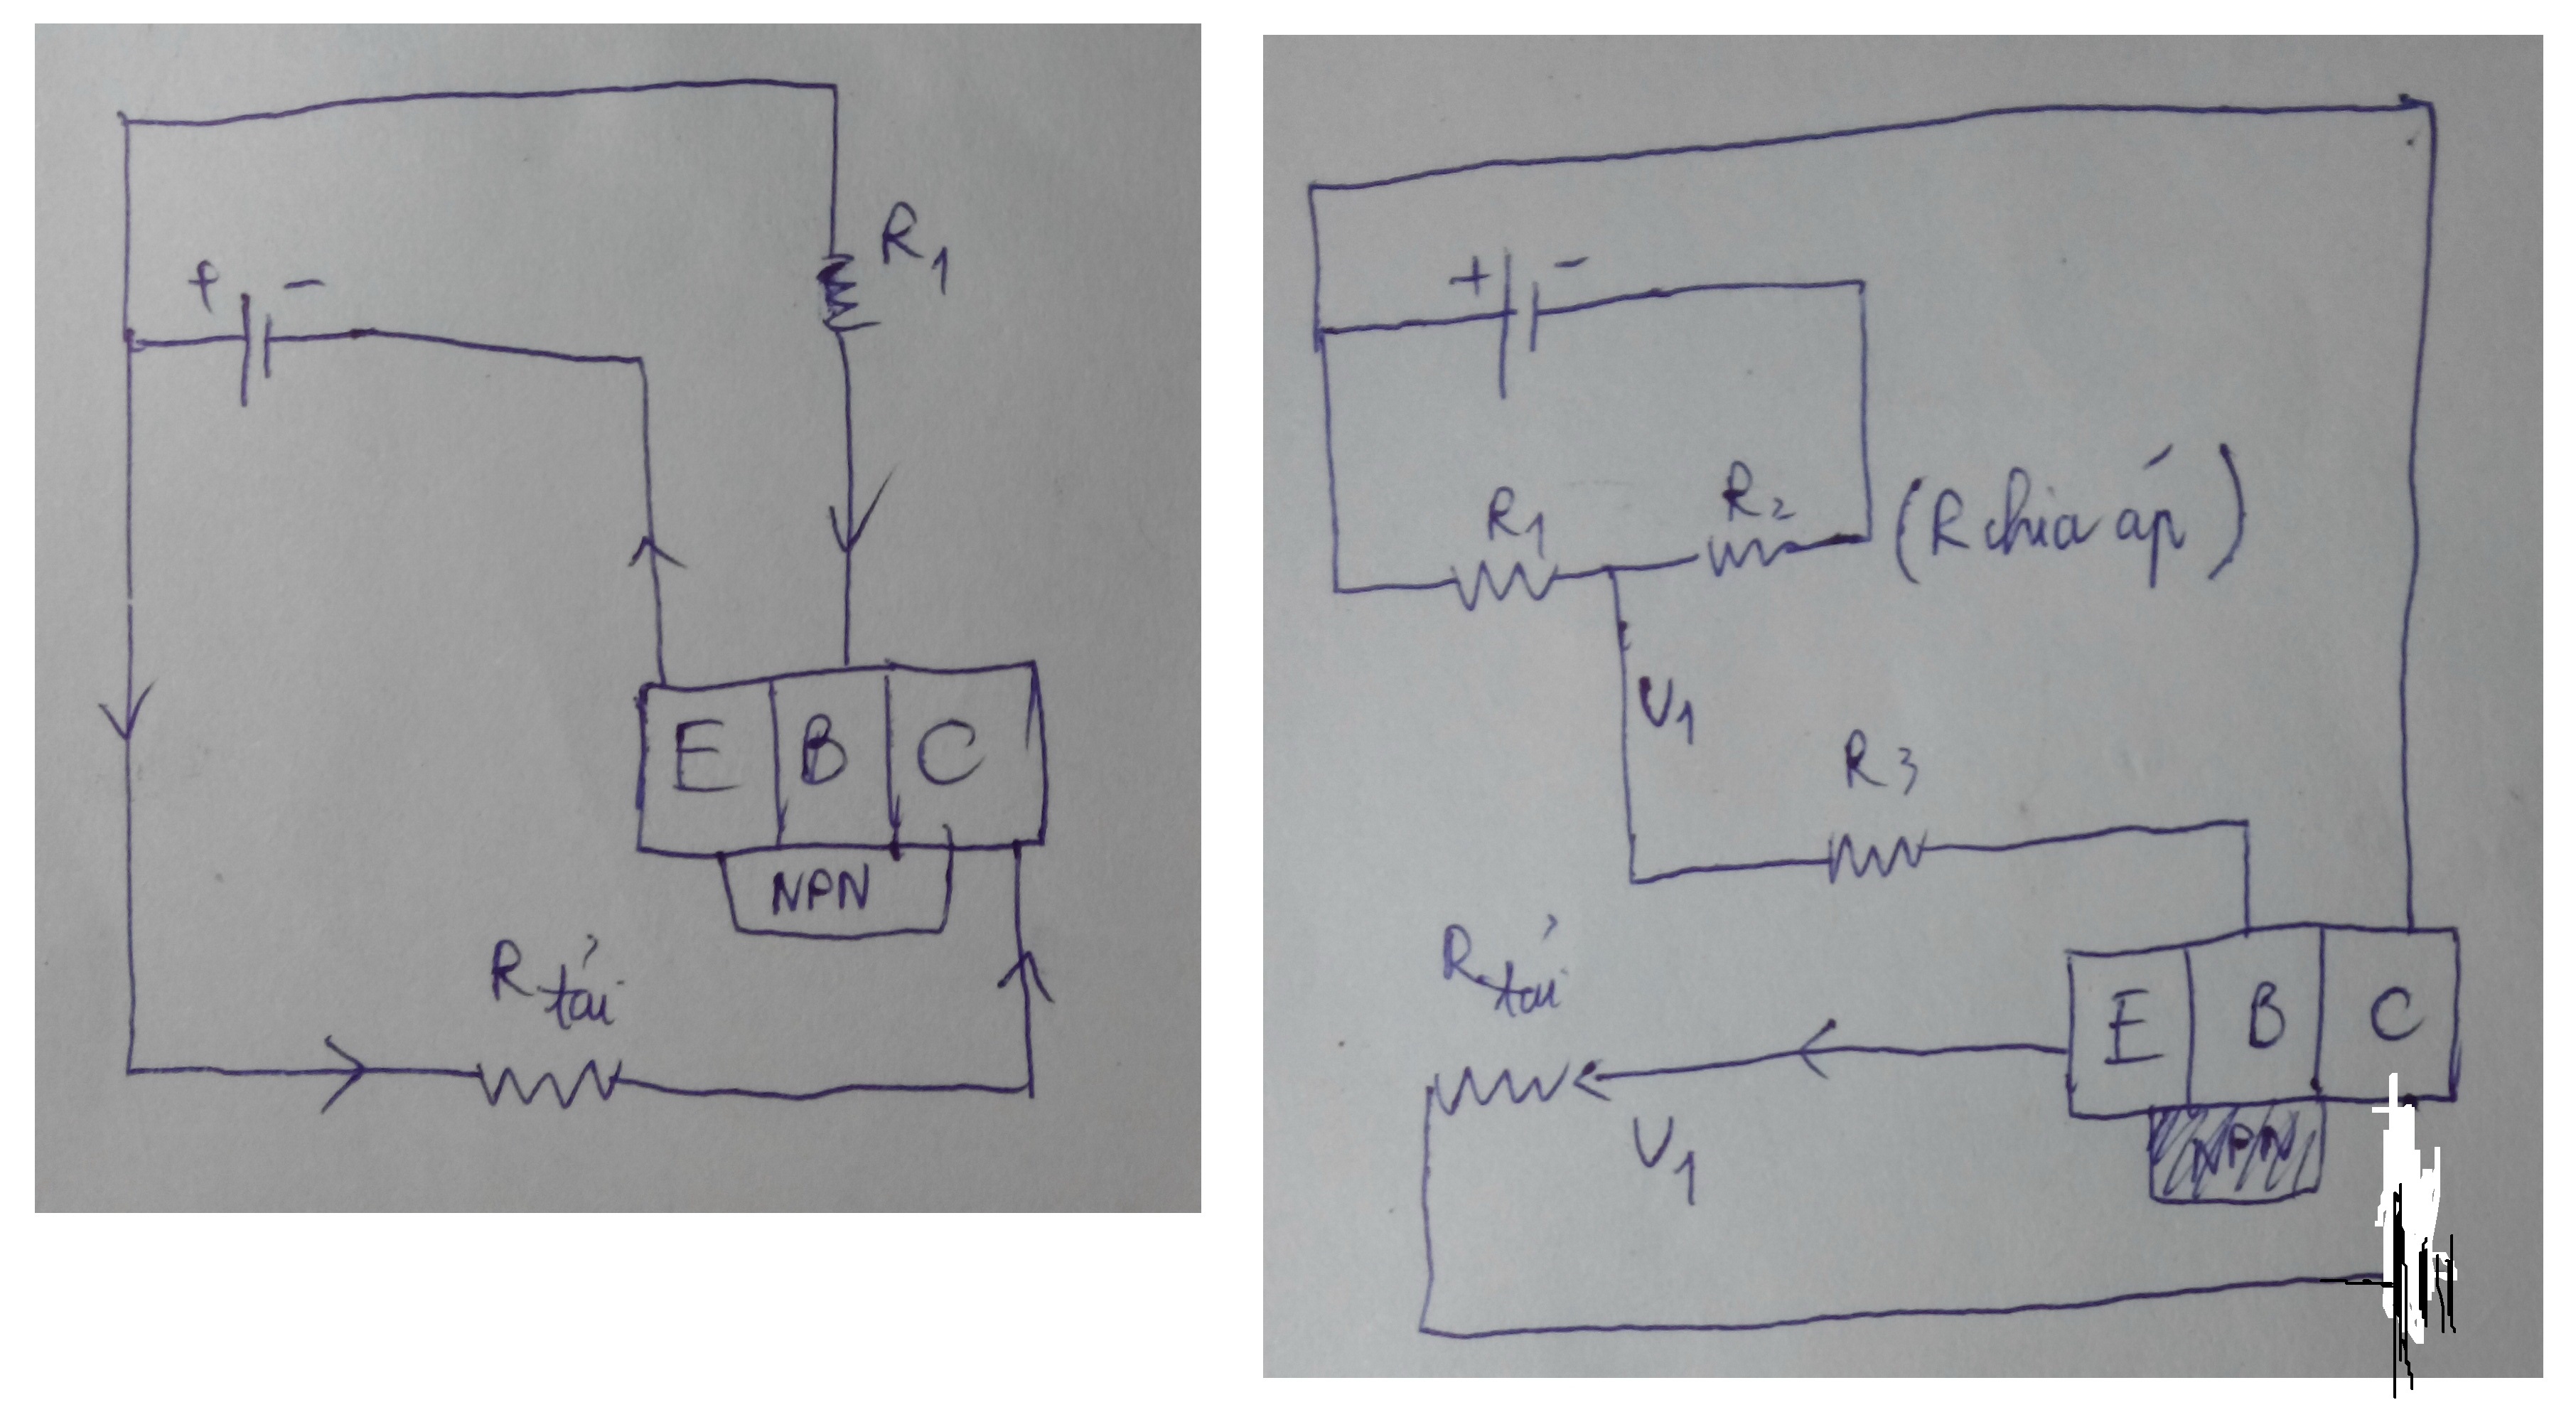 R1
+ -
E B C
NPN
R tải
+ -
R1 R2 (R chia áp)
U1
R3
R tải
E B C
U1
NPN